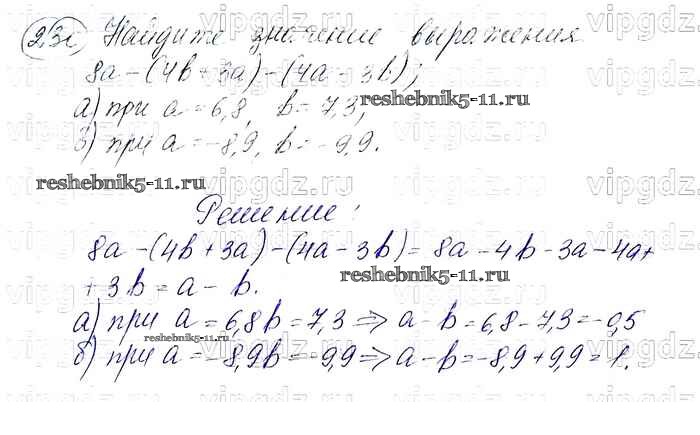 23. Найдите значение выражения
8a-(4b+3a)-(4a-3b);
а) при a=6,8, b=7,3;
reshebnik5-11.ru
б) при a=-8,9, b=-9,9.
reshebnik5-11.ru
Решение:
8a-(4b+3a)-(4a-3b)=8a-4b-3a-4a+
+3b=a-b.
reshebnik5-11.ru
а) при a=6,8 b=7,3 => a-b=6,8-7,3=-0,5
reshebnik5-11.ru
б) при a=-8,9 b=-9,9 => a-b=-8,9+9,9=1.
vipgdz.ru